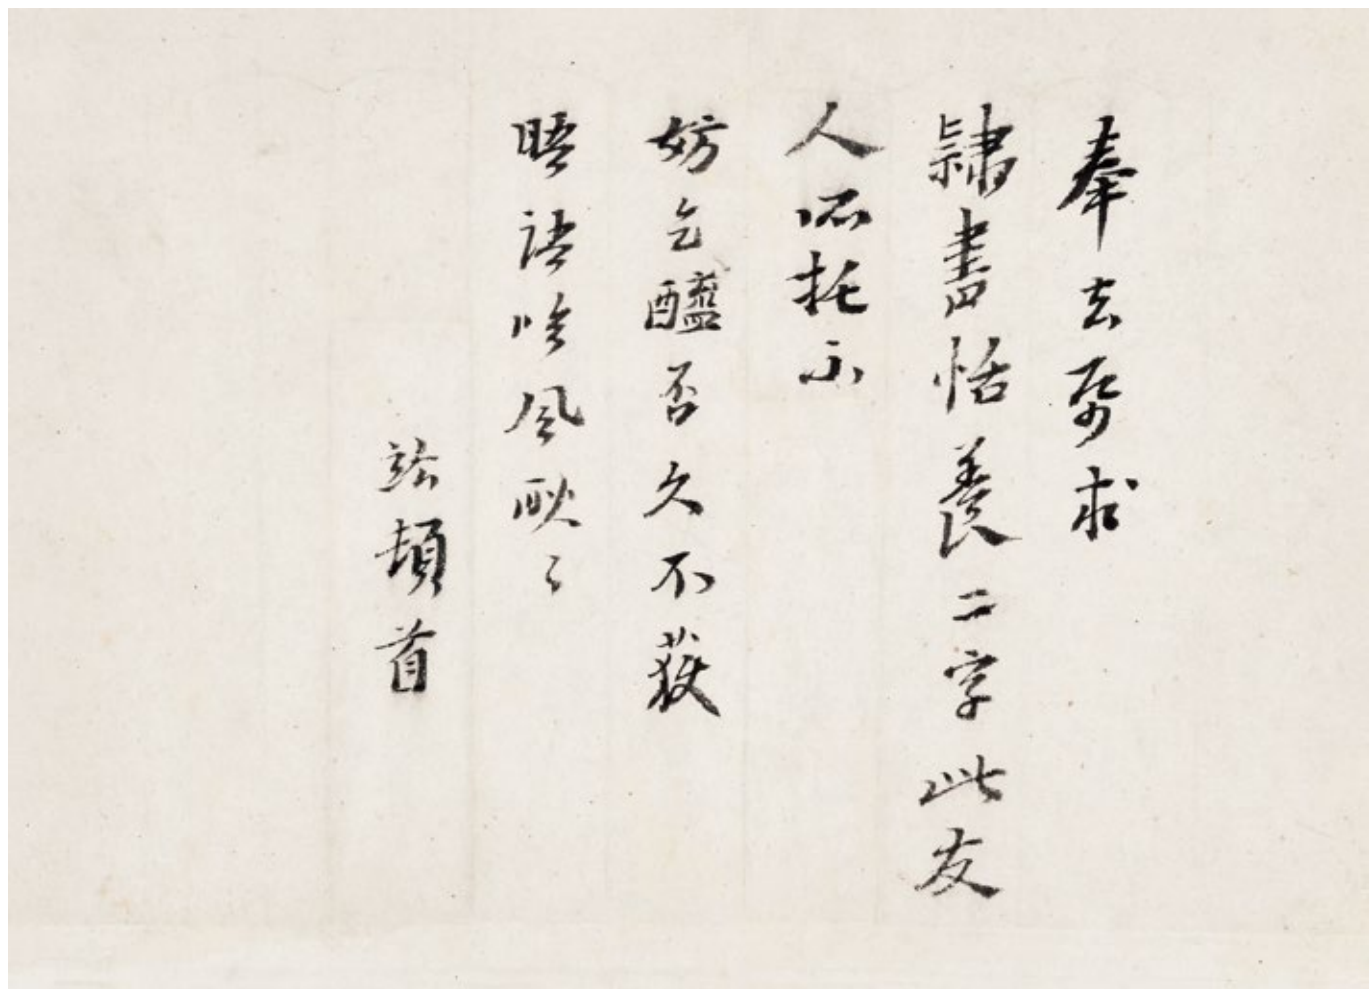 奉去帋求
隸書恬養二字此友
人所托不
妨乞醯否久不獲
晤語臨風耿〻
竑頓首